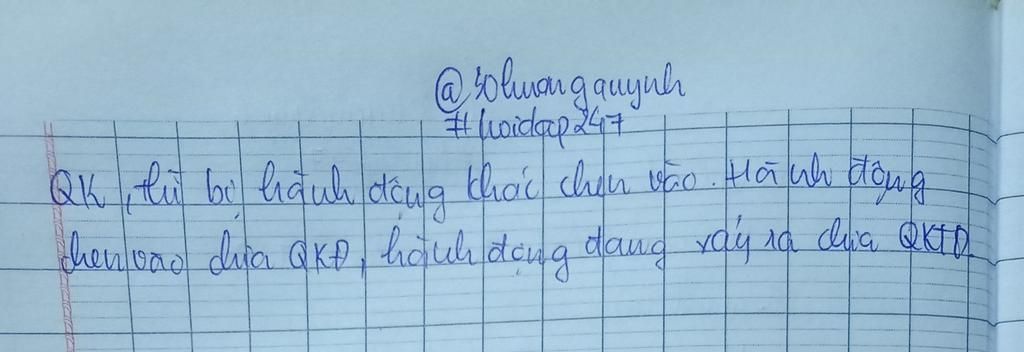 @30huongquynh
#hoidap247
QK, thì bị hành động khác chen vào. Hành động
chen vào chia QKĐ, hành động đang xảy ra chia QKTD